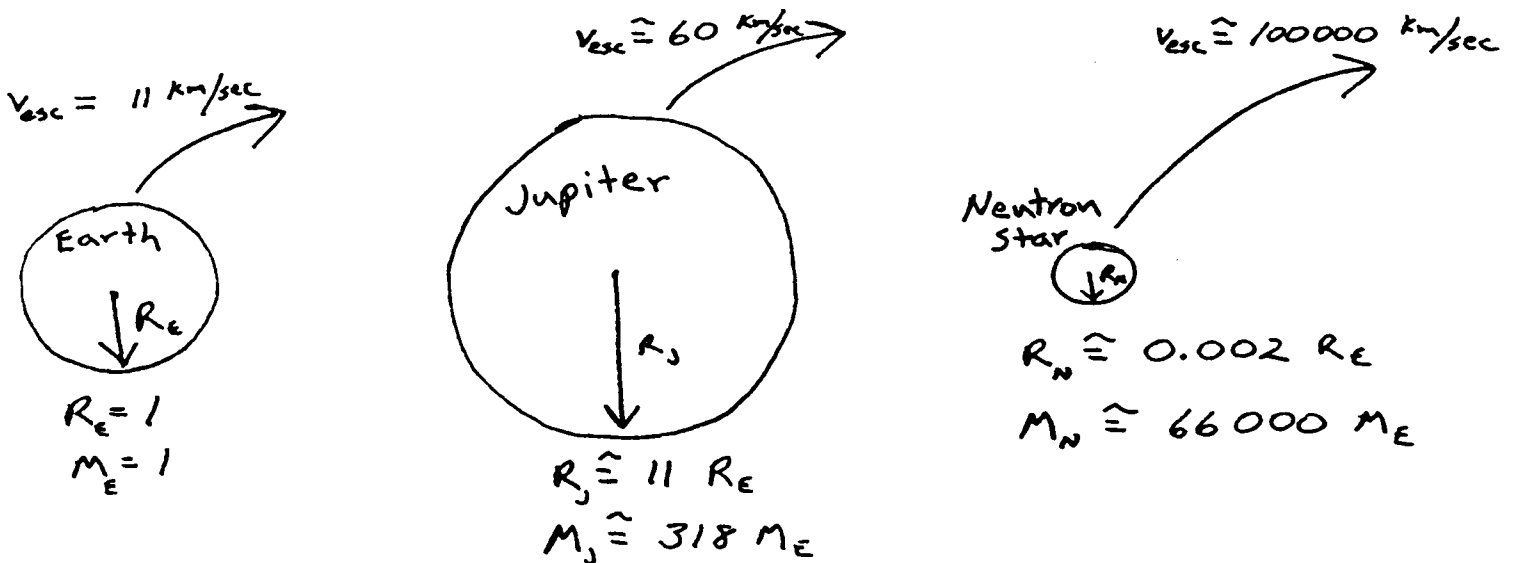 v_esc = 11 km/sec
Earth
R_E
R_E = 1
M_E = 1
v_esc ≅ 60 km/sec
Jupiter
R_J
R_J ≅ 11 R_E
M_J ≅ 318 M_E
v_esc ≅ 100000 km/sec
Neutron
star
R_N
R_N ≅ 0.002 R_E
M_N ≅ 66000 M_E